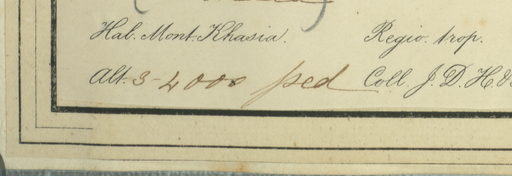 Hab. Mont. Khasia. Regio. trop.
Alt. 3-4000 ped Coll. J. D. H. &